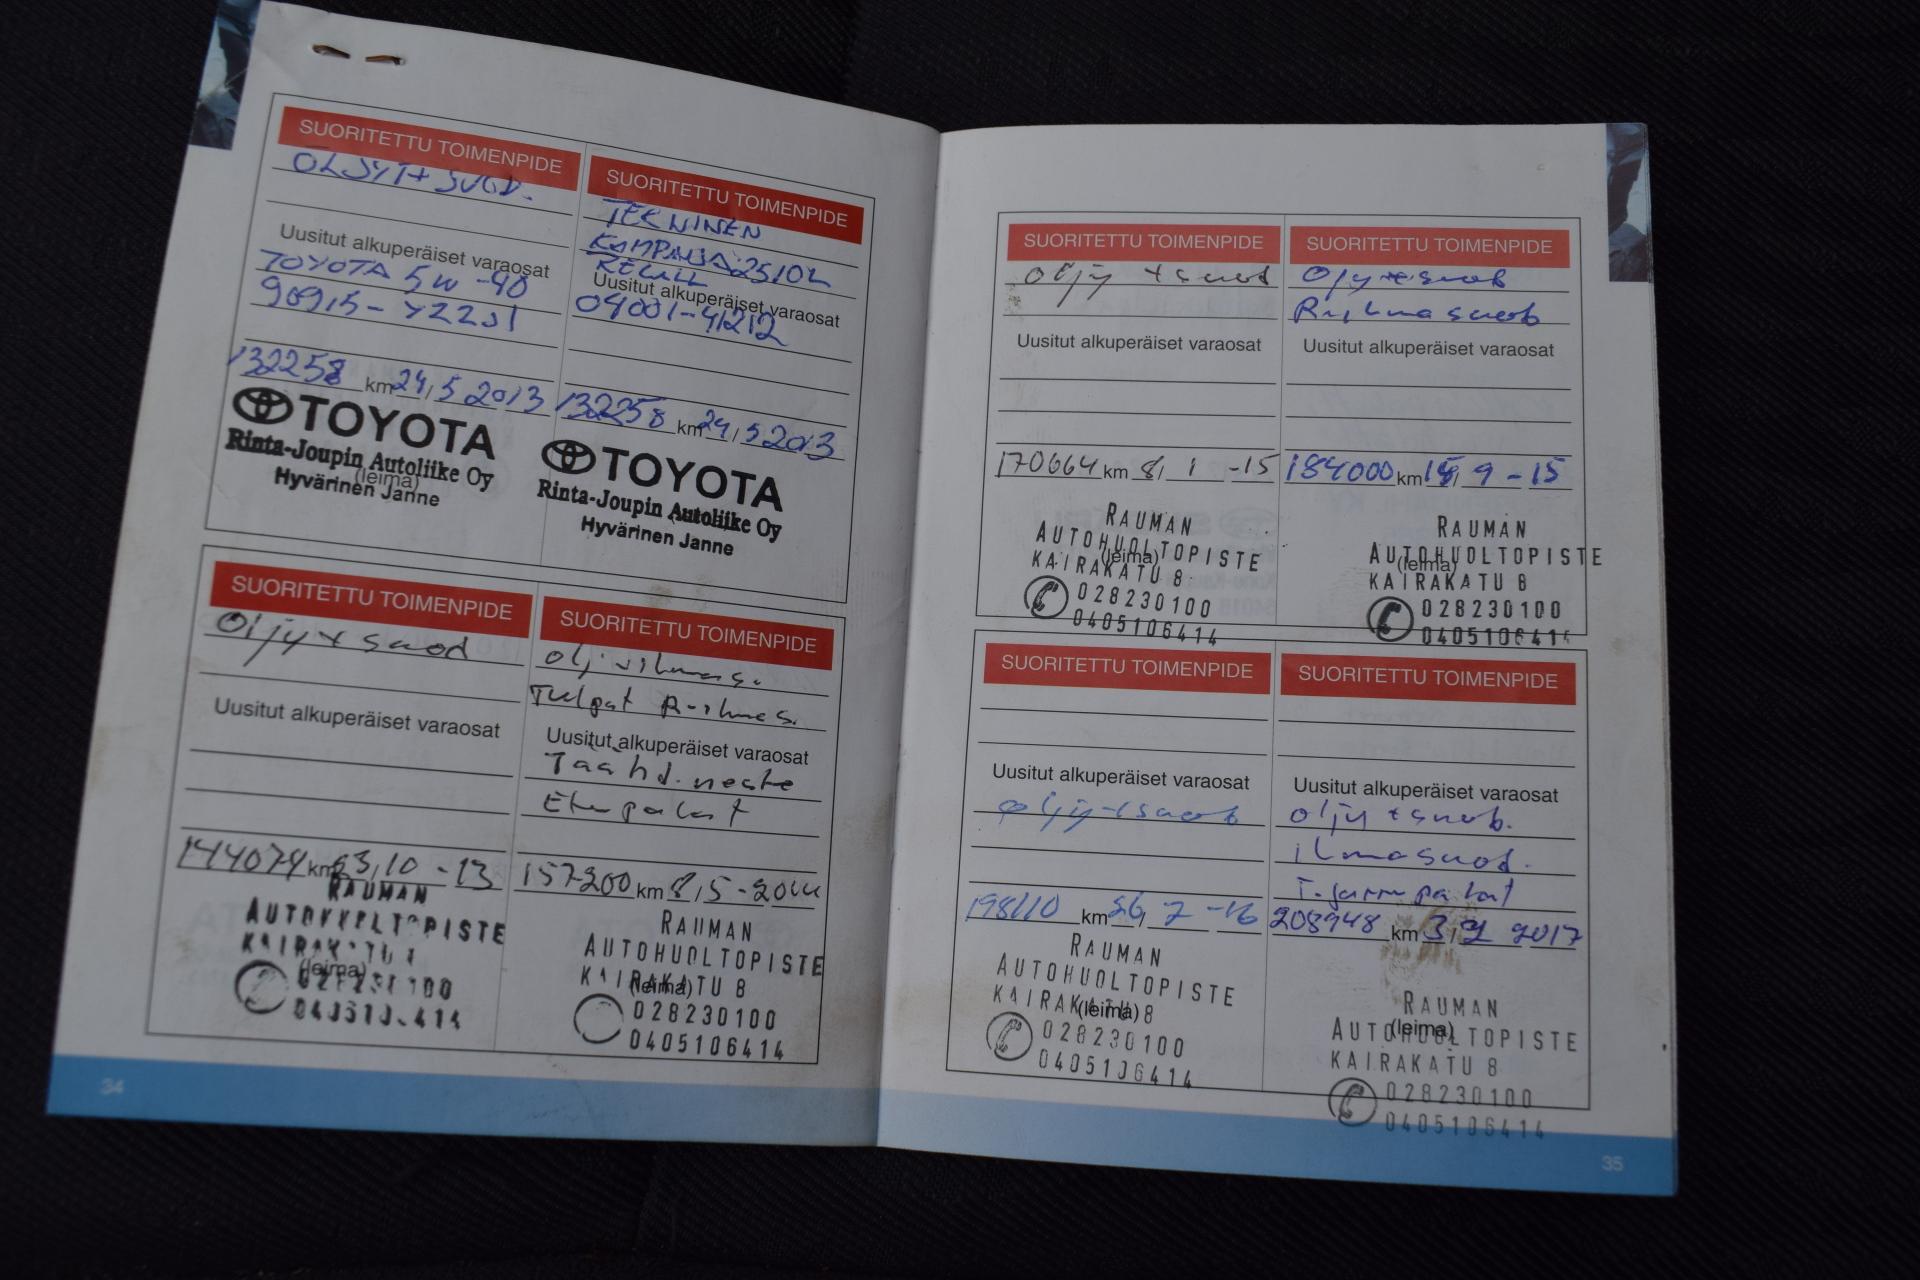 SUORITETTU TOIMENPIDE
ÖLJYT+ SUOD.
Uusitut alkuperäiset varaosat
TOYOTA 5W-40
90915-YZZJ1
132258 km 24/5 2013
TOYOTA
Rinta-Joupin Autoliike Oy
(leima)
Hyvärinen Janne
SUORITETTU TOIMENPIDE
TEKNINEN
KAMPANJA 2510L
RECALL
Uusitut alkuperäiset varaosat
04001-41212
132258 km 24/5 2013
TOYOTA
Rinta-Joupin Autoliike Oy
Hyvärinen Janne
SUORITETTU TOIMENPIDE
Öljy+suod
Uusitut alkuperäiset varaosat
144074 km 23/10 -13
RAUMAN
AUTOHUOLTOPISTE
KAIRAKATU 8
(leima)
028230100
0405106414
SUORITETTU TOIMENPIDE
Tulpat R-ilmas.
Uusitut alkuperäiset varaosat
Jäähd.neste
Etupalat
157200 km 8/5-2014
RAUMAN
AUTOHUOLTOPISTE
KAIRAKATU 8
(leima)
028230100
0405106414
34
SUORITETTU TOIMENPIDE
öljy +suod
Uusitut alkuperäiset varaosat
170664 km 8/1 -15
RAUMAN
AUTOHUOLTOPISTE
(leima)
KAIRAKATU 8
028230100
0405106414
SUORITETTU TOIMENPIDE
Öljy+suod
R.ilmasuod
Uusitut alkuperäiset varaosat
184000 km 18/9 -15
RAUMAN
AUTOHUOLTOPISTE
(leima)
KAIRAKATU 8
028230100
0405106414
SUORITETTU TOIMENPIDE
Uusitut alkuperäiset varaosat
öljy+suod
198110 km 26/7 -16
RAUMAN
AUTOHUOLTOPISTE
KAIRAKATU 8
(leima)
028230100
0405106414
SUORITETTU TOIMENPIDE
Uusitut alkuperäiset varaosat
öljy +suod.
ilmasuod.
T.jarrupalat
208948 km 3/2 2017
RAUMAN
(leima)
AUTOHUOLTOPISTE
KAIRAKATU 8
028230100
0405106414
35